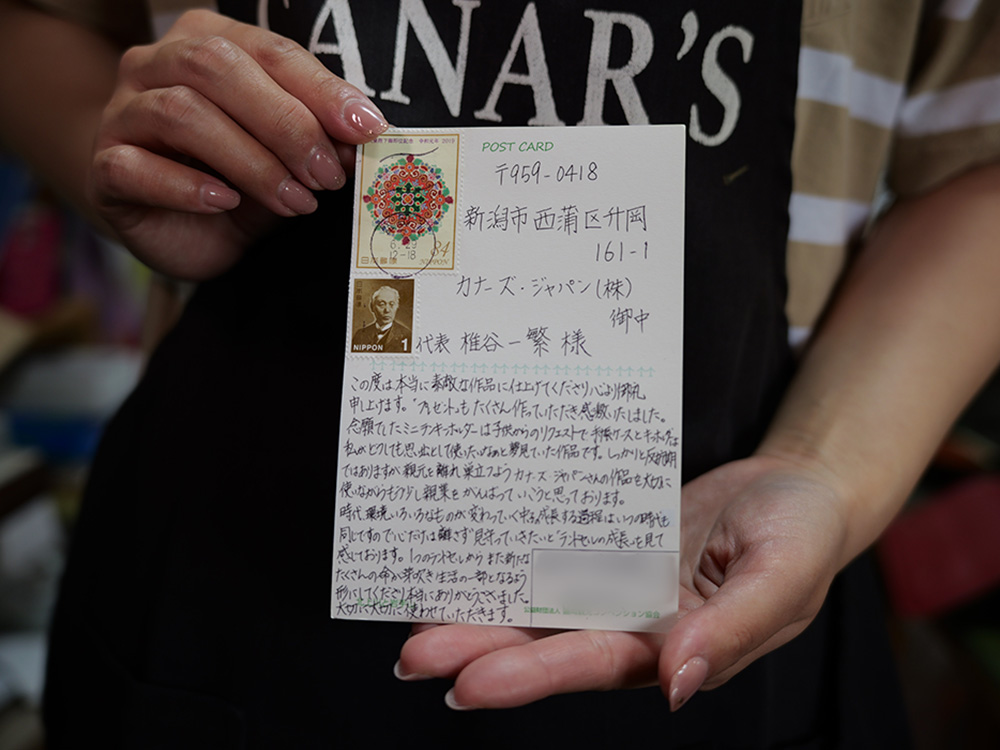 ANAR'S
POST CARD
〒959-0418
新潟市西蒲区升岡
161-1
カナーズ・ジャパン(株)
御中
代表 椎谷一繁様
令和元年 2019
6.29
12-18
84
日本郵便
NIPPON
NIPPON 1
この度は本当に素敵な作品に仕上げてくださり心より御礼
申し上げます。「プレゼント」もたくさん作っていただき感激いたしました。
念願でしたミニランキーホルダーは子供からのリクエストで手帳ケースとキーホルダーは
私がどうしても思い出として使いたいなぁと夢見ていた作品です。しっかりと反抗期
ではありますが親元を離れ巣立つようカナーズ・ジャパンさんの作品を大切に
使いながらもう少し親業をがんばっていこうと思っております。
時代、環境いろいろなものが変わっていく中でも成長する過程はいつの時代も
同じですので心だけは離さず見守っていきたいと「ランドセルの成長」を見て
感じております。1つのランドセルからまた新たな
たくさんの命が芽吹き生活の一部となるよう
形にしてくださり本当にありがとうございました。
大切に大切に使わせていただきます。
公益財団法人
協会